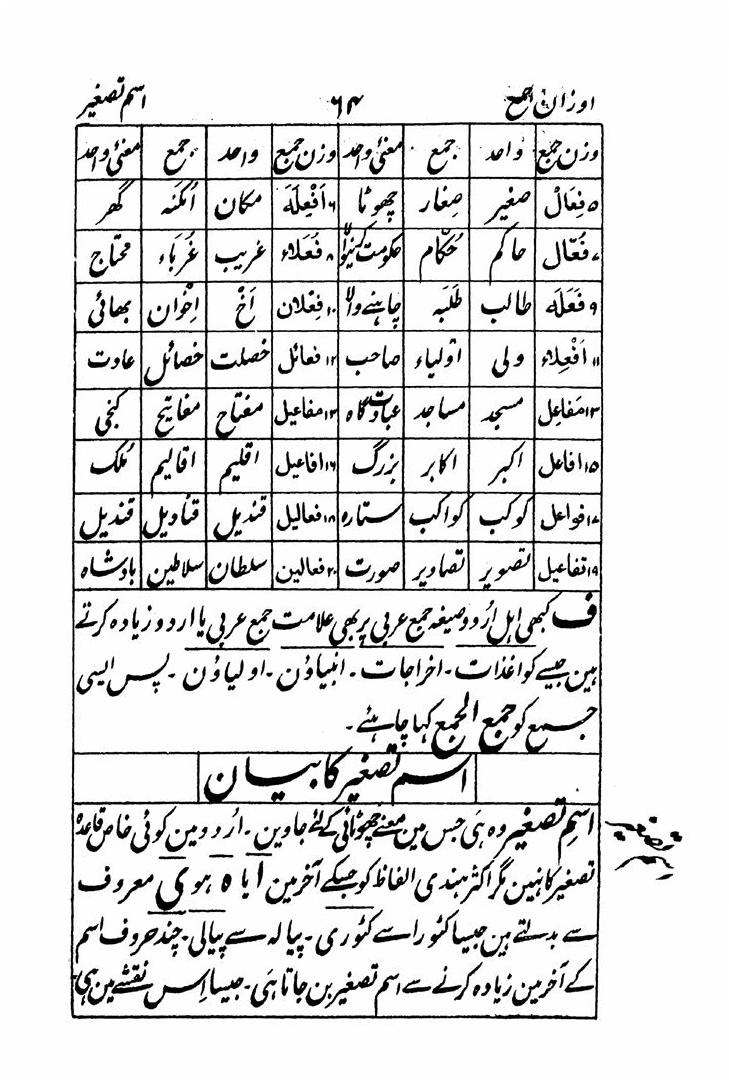 اوزان جمع ۶۴ اسم تصغیر
وزن جمع واحد جمع معنی واحد وزن جمع واحد جمع معنی واحد
۵ فِعَالْ صغیر صِغار چھوٹا ۶ اَفْعِلَه مکان اَمْکنَه گھر
۷ فُعّال حاکم حُکّام حکومت کنیوالا ۸ فُعَلاء غریب غُرَباء محتاج
۹ فَعَلَه طالب طَلَبَه چاہنے والا ۱۰ فِعْلان اَخْ اِخْوان بھائی
۱۱ اَفْعِلاء ولی اولیاء صاحب ۱۲ فعائل خصلت خصائل عادت
۱۳ مَفاعِل مسجد مساجد عبادت گاہ ۱۴ مفاعیل مفتاح مفاتیح کنجی
۱۵ افاعل اکبر اکابر بزرگ ۱۶ افاعیل اقلیم اقالیم مُلک
۱۷ فواعل کوکب کواکب ستارہ ۱۸ فعالیل قندیل قنادیل قندیل
۱۹ تفاعیل تصویر تصاویر صورت ۲۰ فعالین سلطان سلاطین بادشاہ
ف کبھی اہل اُردو صیغہ جمع عربی پر بھی علامت جمع عربی یا اردو زیادہ کرتے
ہین جیسے کواغذات۔ اخراجات۔ انبیاؤن۔ اولیاؤن۔ پس ایسی
جمع کو جمع الجمع کہا چاہئے۔
اسم تصغیر کا بیان
اسمِ تصغیر وہ ہی جس مین معنے چھوٹائی کے لئے جاوین۔ اُردو مین کوئی خاص قاعدہ
تصغیر کا نہین مگر اکثر ہندی الفاظ کو جسکے آخر مین ا یا ہ ہو ی معروف
سے بدلتے ہین جیسا کٹورا سے کٹوری۔ پیالہ سے پیالی۔ چند حروف اسم
کے آخر مین زیادہ کرنے سے اسم تصغیر بن جاتا ہی۔ جیسا اِس نقشے مین ہی
اسم تصغیر